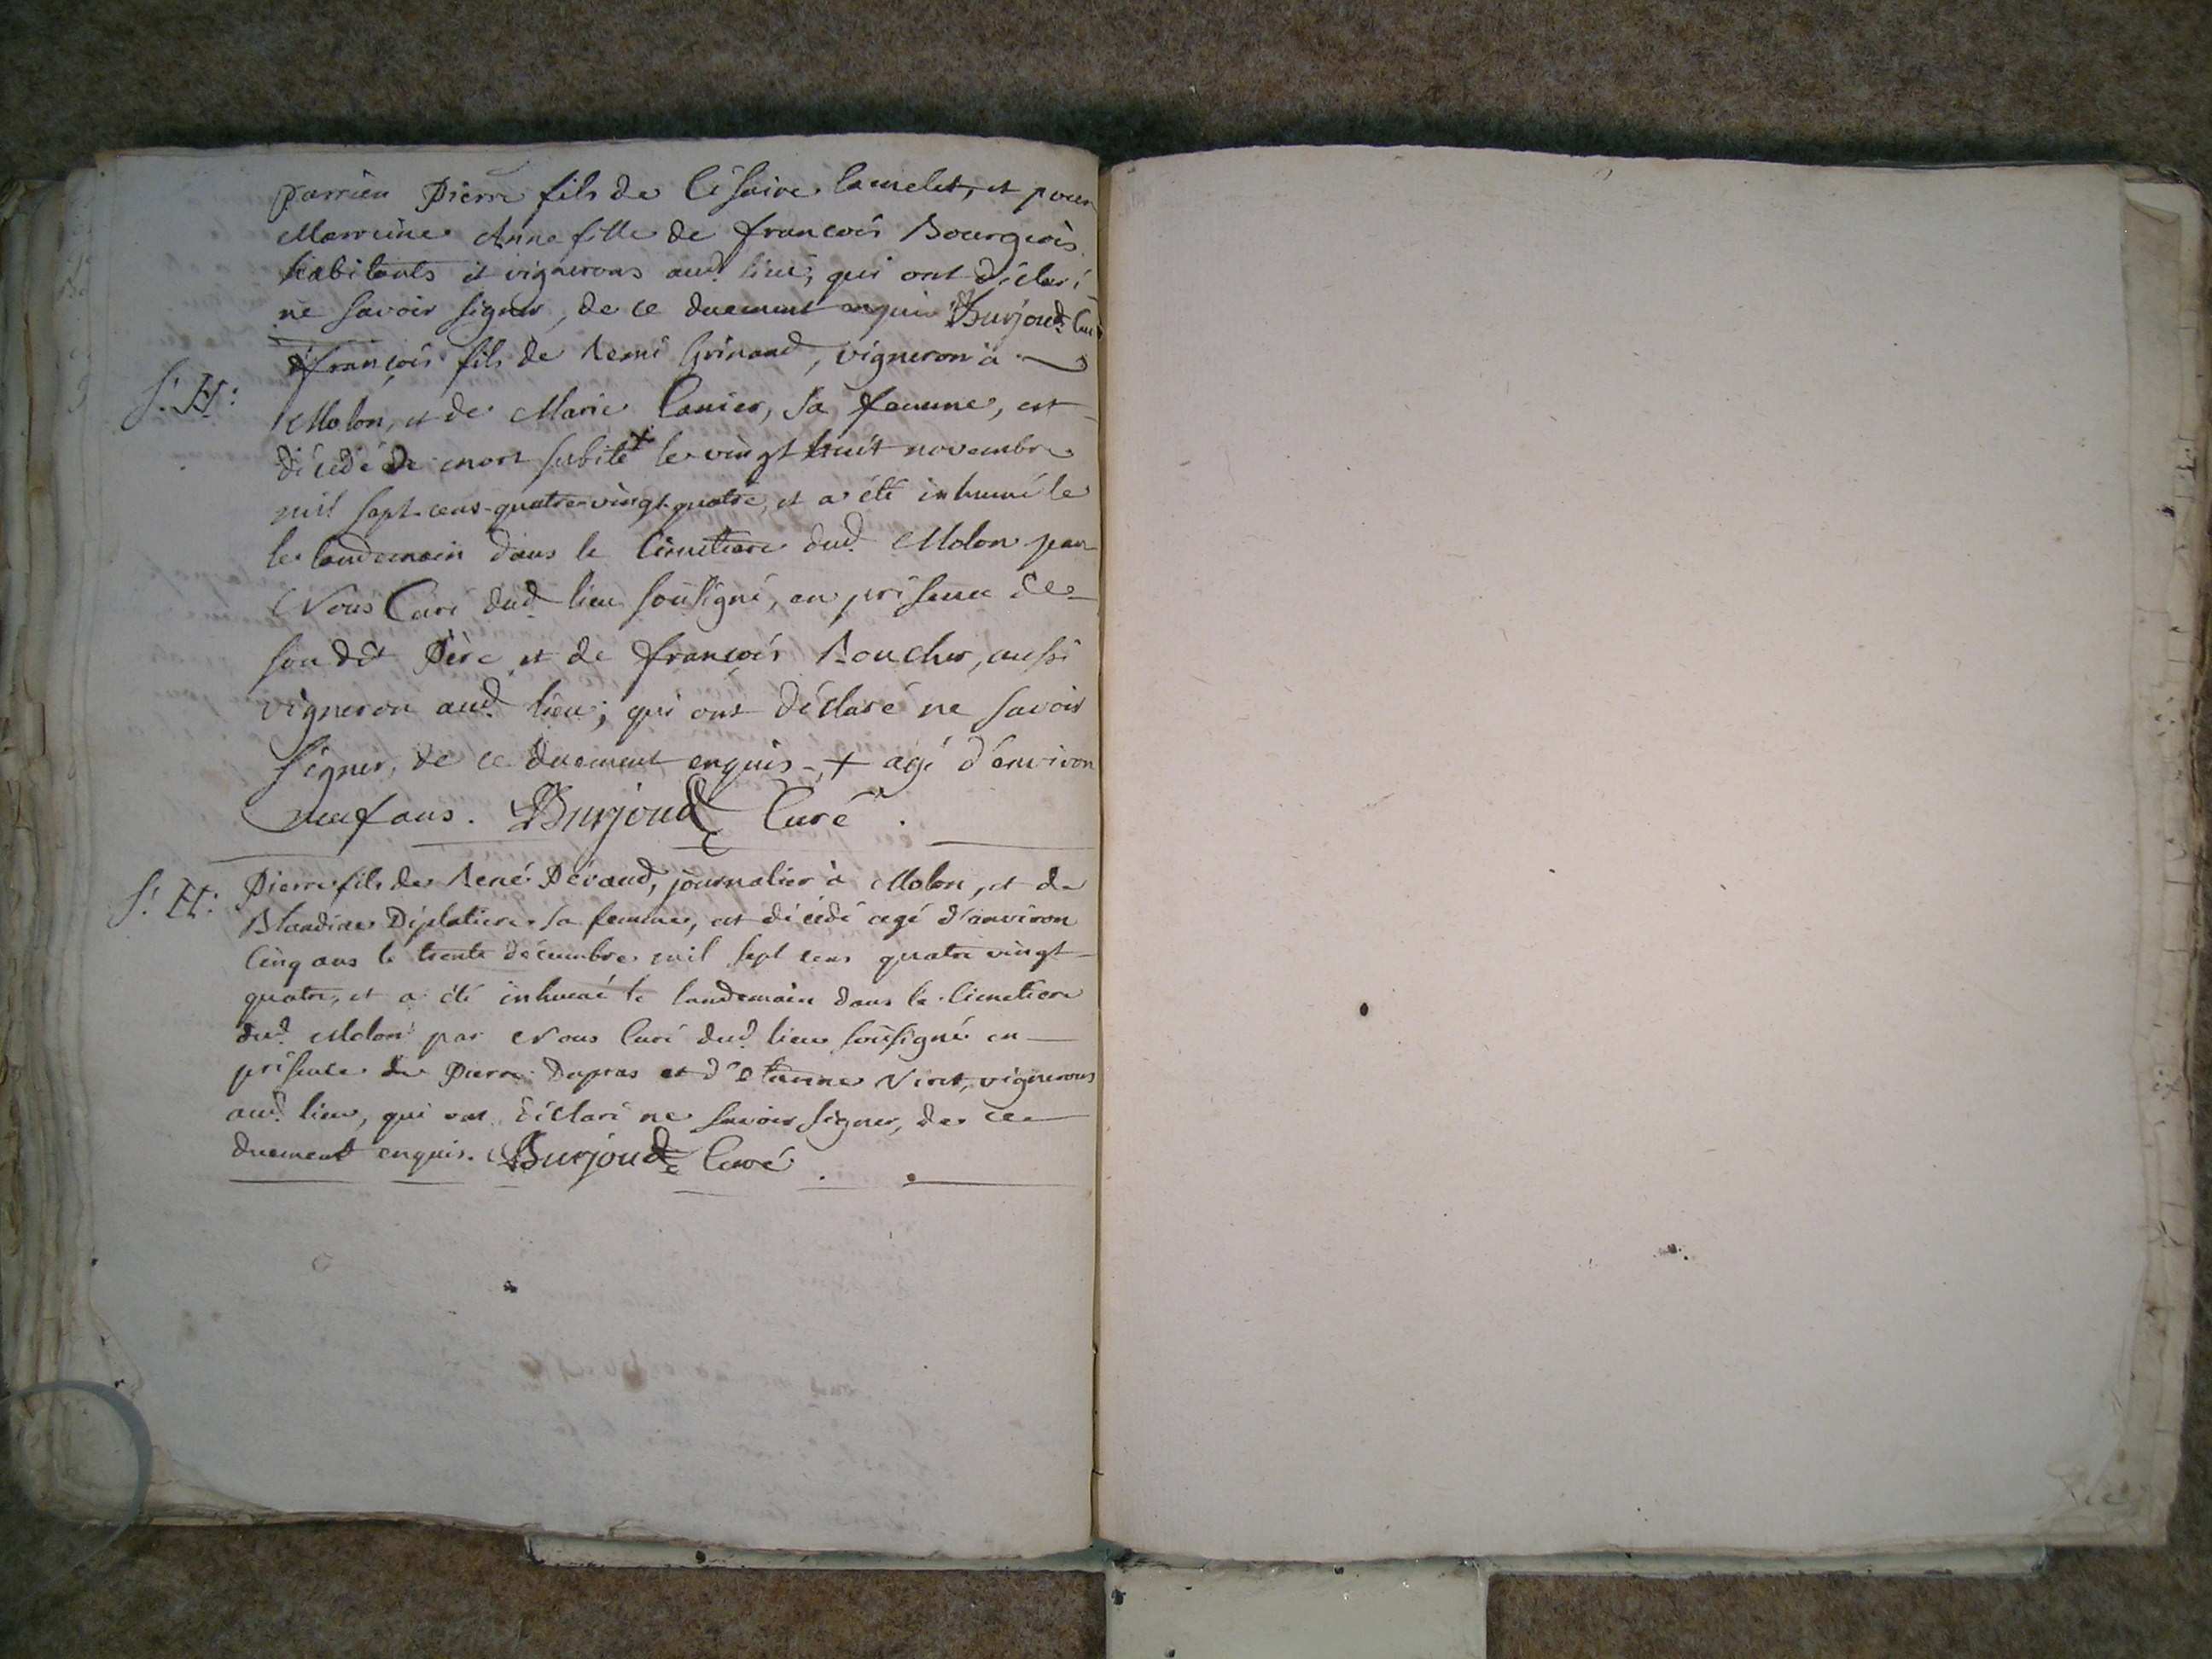 parrien Pierre fils de Césaire lamelet, et pour
Marreine Anne fille de francois Bourgeois
habitants et vignerons aud. lieu, qui ont déclaré
ne savoir signer, de ce duement enquis Burjoud Curé
S. H: françois fils de Remi Grinand, vigneron à
Molon, et de Marie Canier, sa femme, est
décédé de mort subite + le vingt huit novembre
mil sept-cens-quatre-vingt-quatre, et a été inhumé le
le lendemain dans le Cimetiere dud. Molon par
Nous Curé dud. lieu sousigné, en présence de
son dit Père et de françois Roucher, aussi
vigneron aud. lieu; qui ont déclaré ne savoir
signer, de ce duement enquis - + agé d'environ
neuf ans. Burjoud Curé.
S. H: Pierre fils de René Dévaud, journalier à Molon, et de
Blandine Déplatiere sa femme, est décédé agé d'environ
Cinq ans le trente décembre mil sept cens quatre vingt
quatre, et a été inhumé le lendemain dans le Cimetiere
dud. Molon par Nous Curé dud. lieu sousigné en
présence de Pierre Dupras et d'Etienne Viret, vignerons
aud. lieu, qui ont déclaré ne savoir signer, de ce
duement enquis. Burjoud Curé.